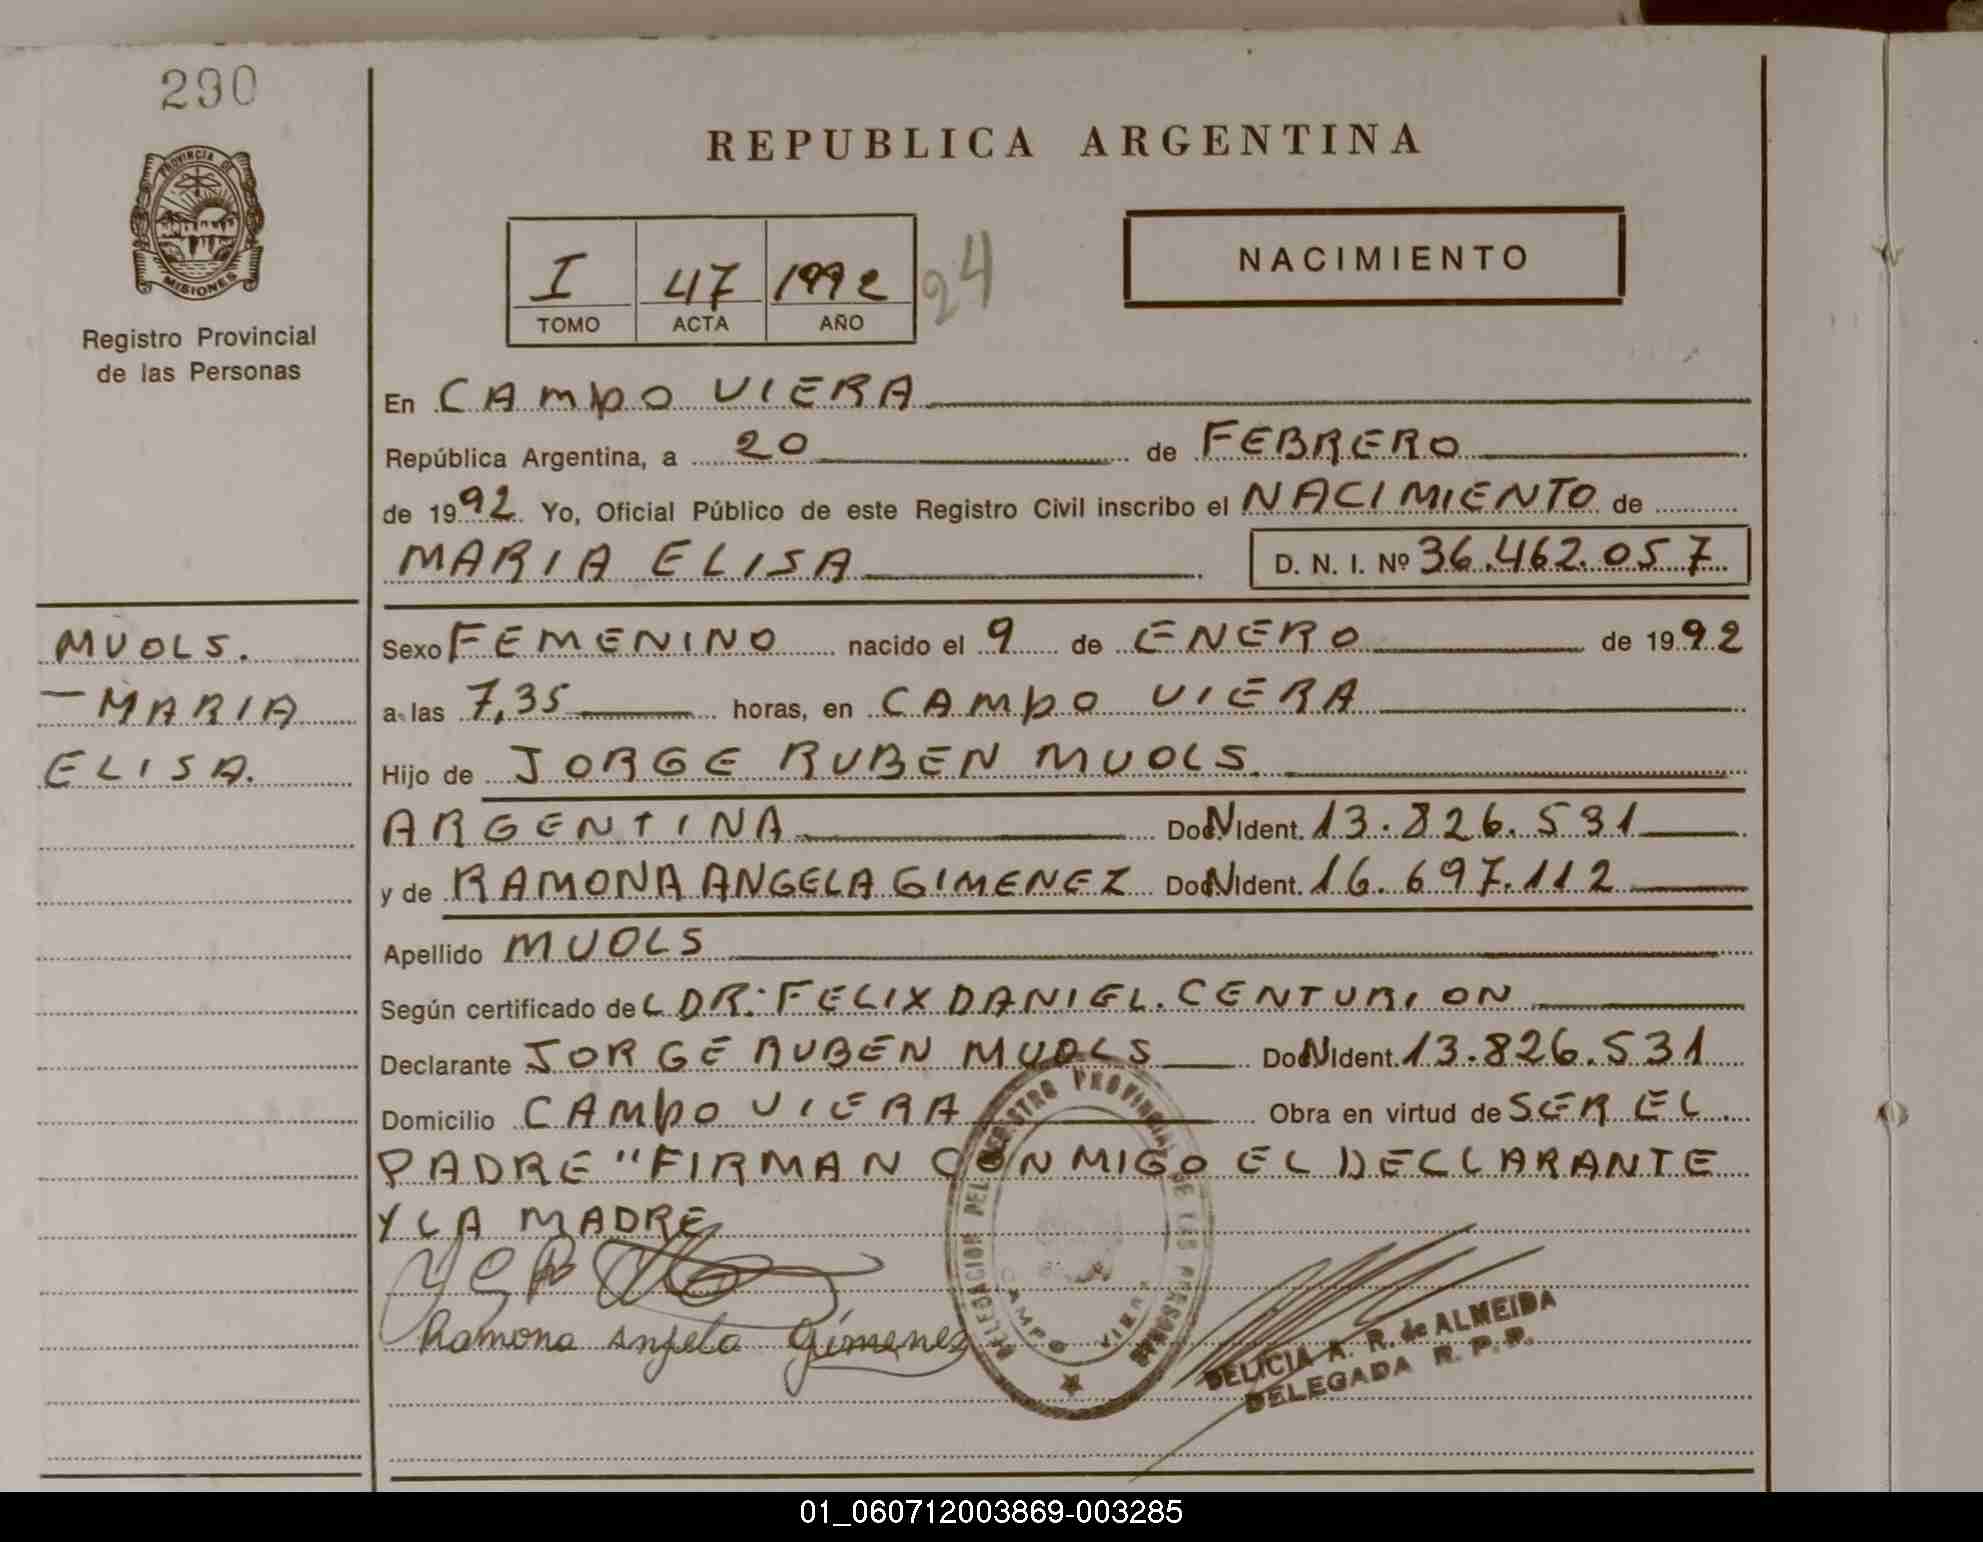 290
PROVINCIA DE
MISIONES
Registro Provincial
de las Personas
REPUBLICA ARGENTINA
I 47 1992 24
TOMO ACTA AÑO
NACIMIENTO
En CAMPO VIERA
República Argentina, a 20 de FEBRERO
de 1992 Yo, Oficial Público de este Registro Civil inscribo el NACIMIENTO de
MARIA ELISA D. N. I. Nº 36.462.057
MUOLS.
MARIA
ELISA.
Sexo FEMENINO nacido el 9 de ENERO de 1992
a las 7,35 horas, en CAMPO VIERA
Hijo de JORGE RUBEN MUOLS.
ARGENTINA DocNIdent. 13.826.531
y de RAMONA ANGELA GIMENEZ DocNIdent. 16.697.112
Apellido MUOLS
Según certificado deL DR: FELIX DANIEL. CENTURION
Declarante JORGE RUBEN MUOLS DocNIdent. 13.826.531
Domicilio CAMPO VIERA Obra en virtud de SER EL
PADRE "FIRMAN CONMIGO EL DECLARANTE
Y LA MADRE
Ramona Angela Gimenez
DELEGACION DEL REGISTRO PROVINCIAL DE LAS PERSONAS
CAMPO VIERA
DELICIA A. R. de ALMEIDA
DELEGADA R. P. P.
01_060712003869-003285